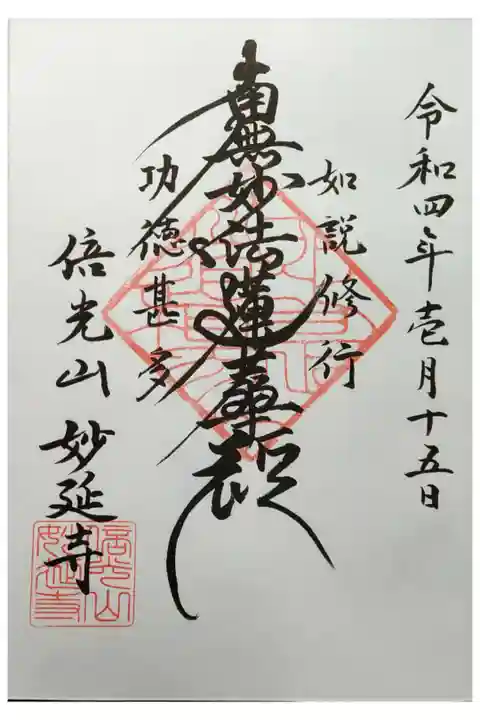 令和四年壱月十五日
如説修行
南無妙法蓮華経
功徳甚多
倍光山
妙延寺
倍光山
妙延寺